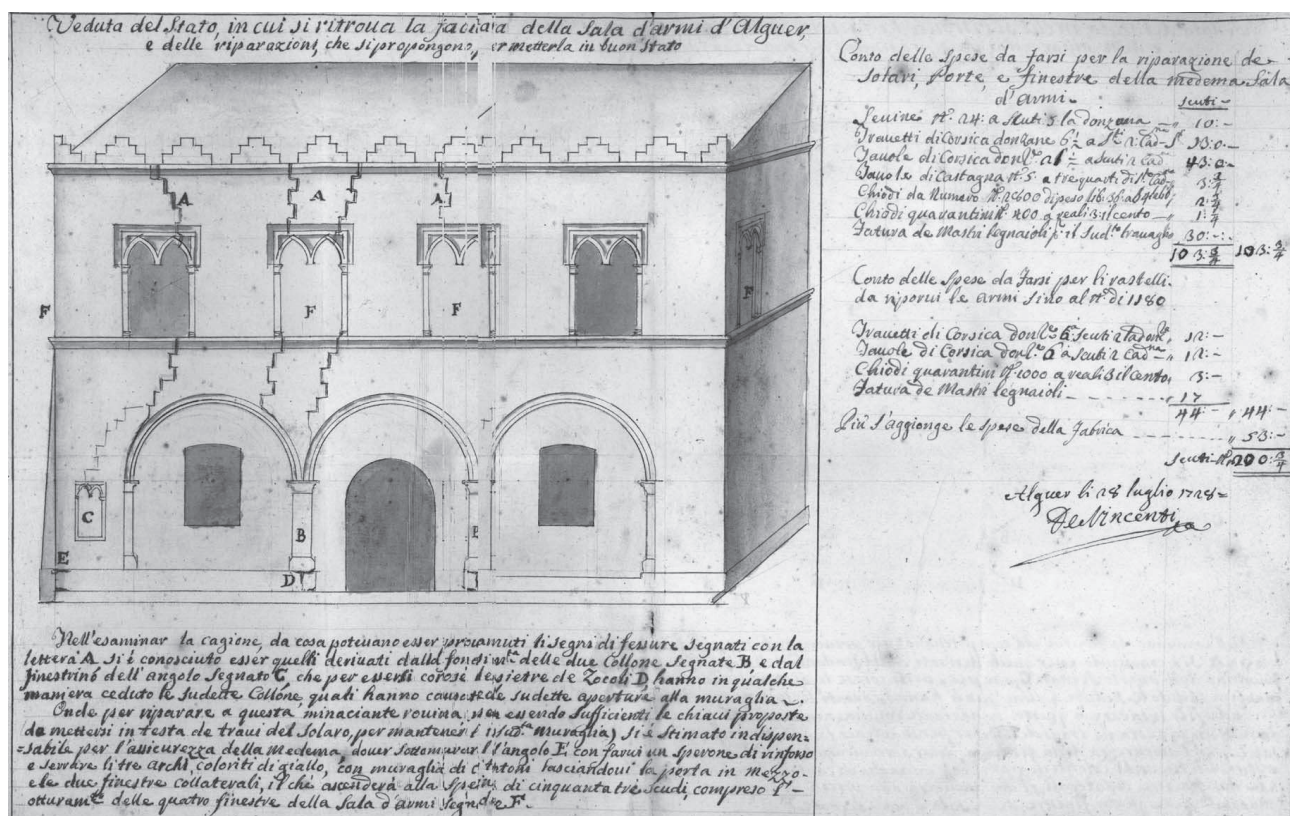 Veduta del Stato, in cui si ritroua la faciata della Sala d'armi d'Alguer,
e delle riparazioni, che si propongono, per metterla in buon Stato
A
A
A
F
F
F
F
C
B
B
E
D
Nell'esaminar la cagione, da cosa poteuano esser prouenuti li segni di fessure segnati con la
lettera A si é conosciuto esser quelli deriuati dalla delle due Collone Segnate B e dal
finestrino dell'angolo Segnato C, che per essersi corose le pietre de Zocoli D hanno in qualche
maniera ceduto le sudette Collone, quali hanno causate de sudette aperture alla muraglia
Onde per riparare a questa minaciante rouina, non essendo Sufficienti le chiaui proposte
da mettersi in testa de traui del Solaro, per mantener la sud.ta muraglia, si é stimato indispen=
=sabile per l'assicurezza della medema, douer sottomurar l'angolo E con farui un sperone di rinforso
e serrare li tre archi, coloriti di giallo, con muraglia di cantoni lasciandoui la porta in mezzo
e le due finestre collaterali, il ché ascenderá alla Spesa di cinquanta tre Scudi, compreso l'-
otturam.to delle quatro finestre della Sala d'armi Segnate F.
Conto delle Spese da farsi per la riparazione de
Solari, Porte, e finestre della medema Sala
d'armi.
scuti
n.o 24: a scuti 5 la donzana 10:-
Trauetti di Corsica donzane 6½ a 2 Cad.na 13:0-
Tauole di Corsica a scuti 2 Cad. 43:0-
Tauole di Castagna n.o 5 a tre quarti di 3:¾
Chiodi da Numero 2600 di peso 2:¾
Chiodi quarantini n.o 400 a reali 3 il cento 1:¼
Fatura de Mastri legnaioli p. il Sud.o trauaglio 30:-:
103:¾ 103:¾
Conto delle Spese da farsi per li rastelli
da riporui le armi sino al n.o di 1180
Trauetti di Corsica 6 a Scuti 2 la 12:-
Tauole di Corsica 6 a Scuti 2 Cad.na 12:-
Chiodi quarantini n.o 1000 a reali 3 il cento, 3:-
Fatura de Mastri legnaioli 17
44:- 44:-
Piú s'aggionge le spese della fabrica 53:-
scuti 200:¾
Alguer li 28 luglio 1728=
De Vincenti